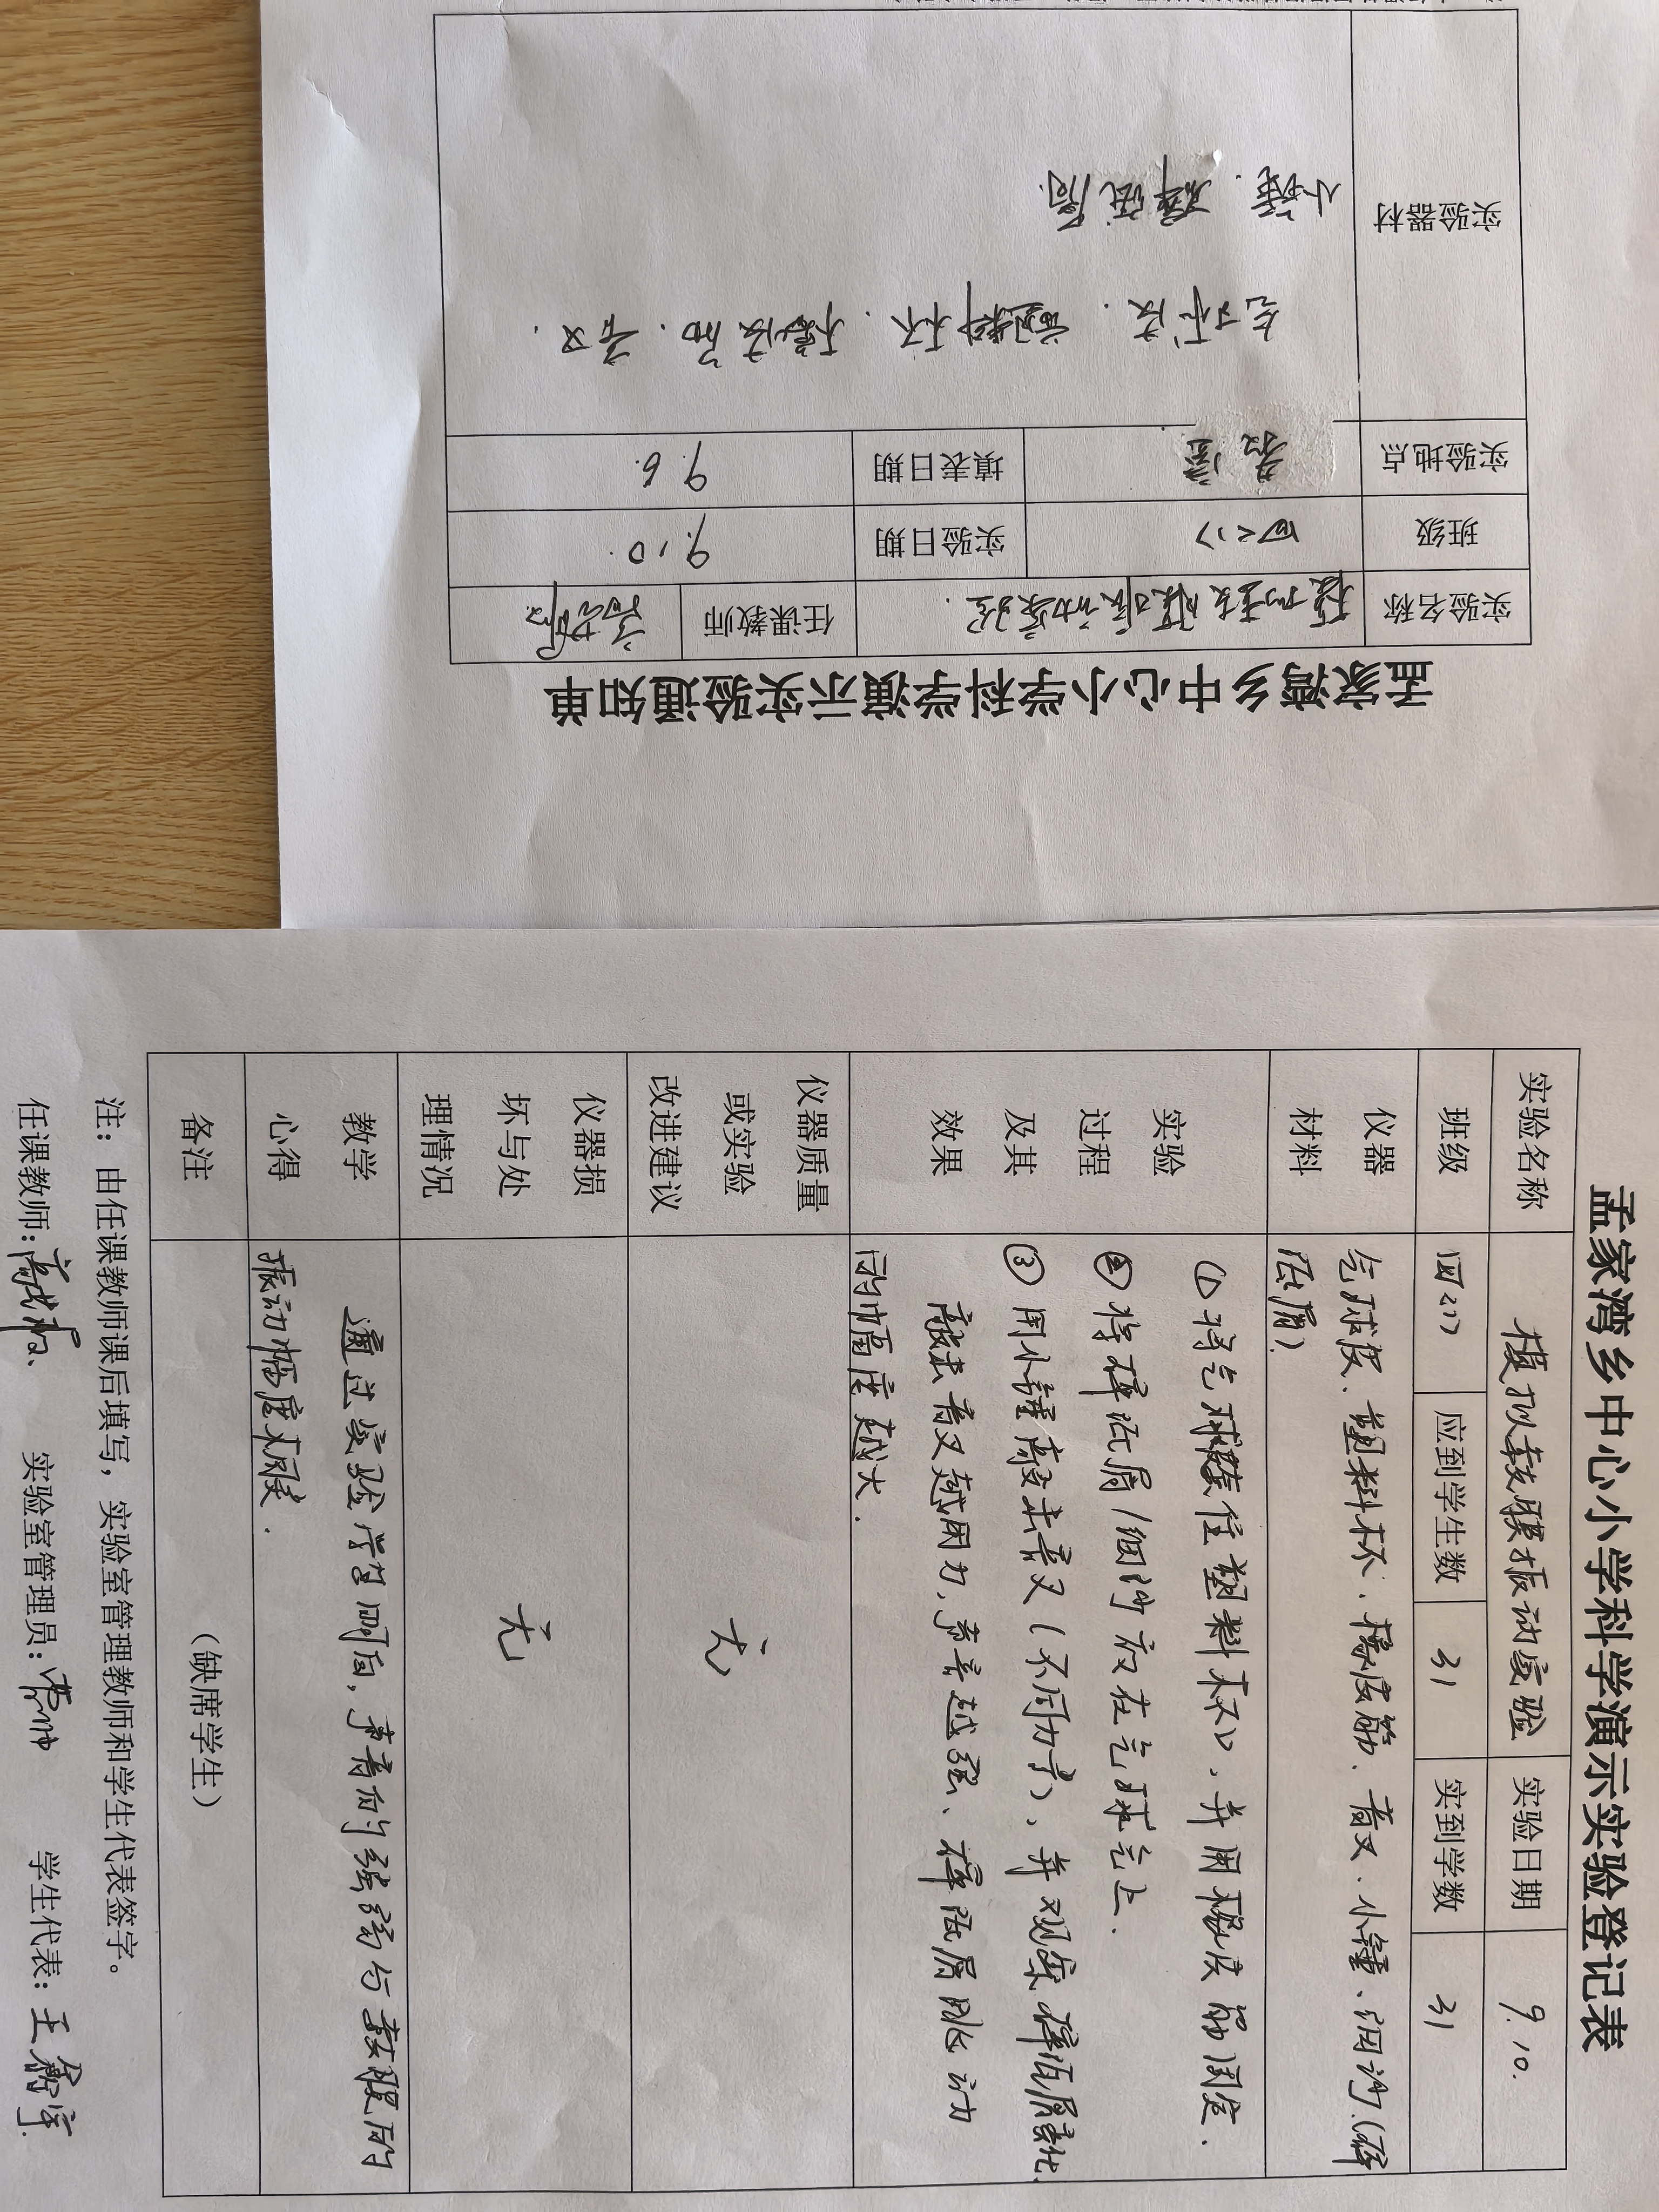 孟家湾乡中心小学科学演示实验通知单
实验名称 模拟鼓膜振动实验. 任课教师
班级 四<1> 实验日期 9.10.
实验地点 教室 填表日期 9.6.
实验器材 气球皮. 塑料杯. 橡皮筋. 音叉.
小锤. 碎纸屑.
孟家湾乡中心小学科学演示实验登记表
实验名称 模拟鼓膜振动实验 实验日期 9.10.
班级 四<1> 应到学生数 31 实到学数 31
仪器材料 气球皮、塑料杯、橡皮筋、音叉、小锤、细沙.(碎
纸屑)
实验过程及其效果 ①将气球皮套住塑料杯口,并用橡皮筋固定.
②将碎纸屑/细沙放在气球皮上.
③用小锤敲击音叉(不同力度),并观察碎纸屑变化.
敲击音叉越用力,声音越强、碎纸屑跳动
的幅度越大.
仪器质量或实验改进建议 无
仪器损坏与处理情况 无
教学心得 通过实验学習明白,声音的强弱与鼓膜的
振动幅度有关.
备注 (缺席学生)
注:由任课教师课后填写,实验室管理教师和学生代表签字。
任课教师: 实验室管理员: 学生代表:王